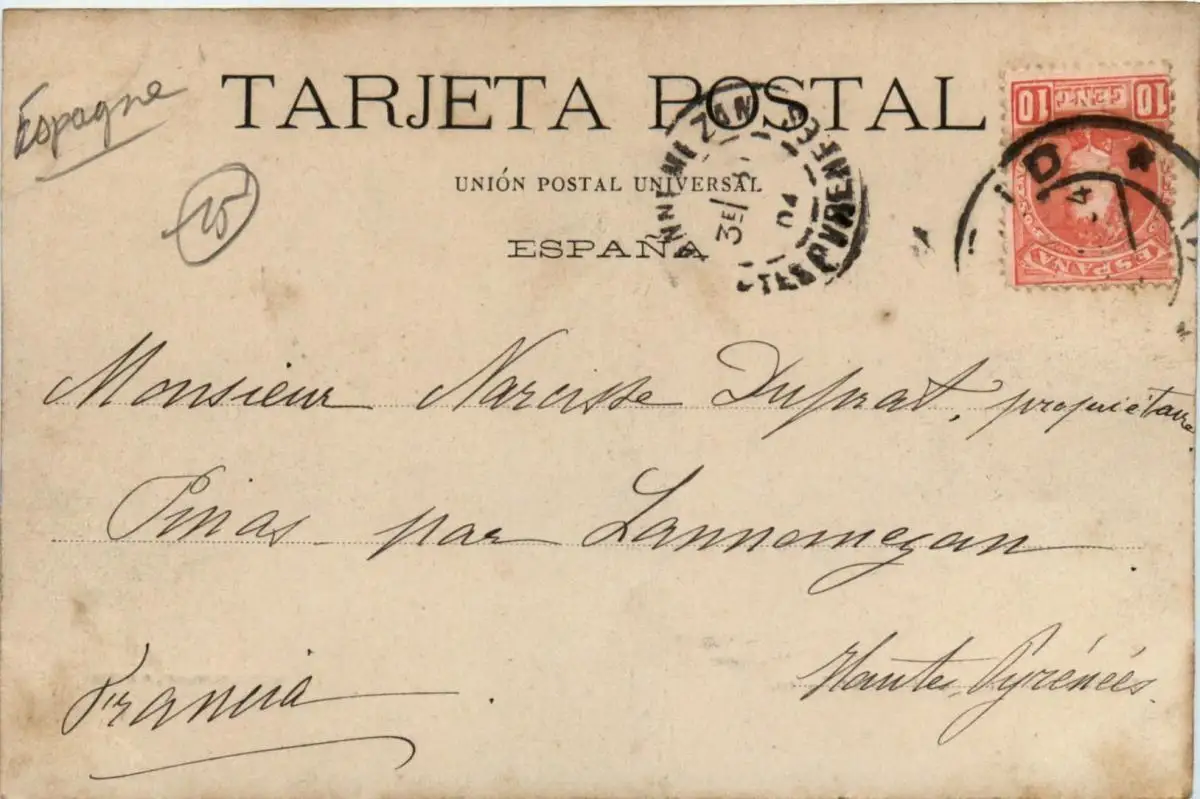 Espagne
TARJETA POSTAL
UNIÓN POSTAL UNIVERSAL
ESPAÑA
10 CENT 10
ESPAÑA
3E/
04
Monsieur Narcisse Duprat, propriétaire
Pinas par Lannemezan
Hautes Pyrénées
Francia